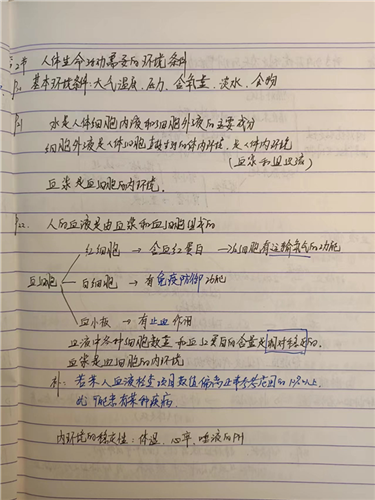 第2节 人体生命活动需要的环境条件
基本环境条件:大气温度、压力、含氧量、淡水、食物
P21
水是人体细胞内液和细胞外液的主要成分
细胞外液是人体细胞直接生活的体内环境,是人体内环境
(血浆和组织液)
血浆是血细胞的内环境.
P22 人的血液是由血浆和血细胞组成的
红细胞 → 含血红蛋白 → 红细胞有运输氧气的功能
血细胞 白细胞 → 有免疫防御功能
血小板 → 有止血作用
血液中各种细胞数量和血红蛋白的含量是相对稳定的.
血浆是血细胞的内环境
补: 若某人血液检查项目数值偏高正常参考范围的10%以上,
就可能患有某种疾病.
内环境的稳定性:体温、心率、唾液的PH